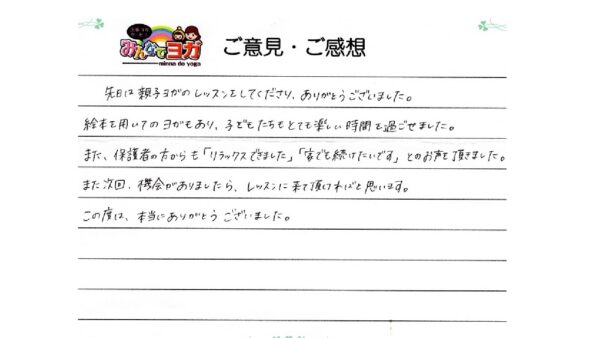 みんなでヨガ
minna de yoga
ご意見・ご感想
先日は親子ヨガのレッスンをしてくださり、ありがとうございました。
絵本を用いてのヨガもあり、子どもたちもとても楽しい時間を過ごせました。
また、保護者の方からも「リラックスできました」「家でも続けたいです」とのお声を頂きました。
また次回、機会がありましたら、レッスンに来て頂ければと思います。
この度は、本当にありがとうございました。